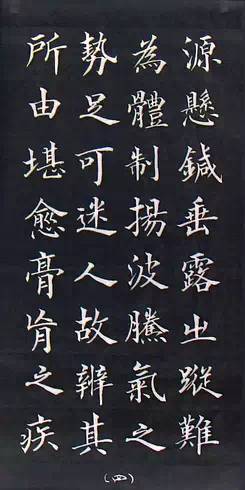 源懸鍼垂露㞢蹤難
為體制揚波騰氣之
勢足可迷人故辨其
所由堪愈膏肓之疾
(四)